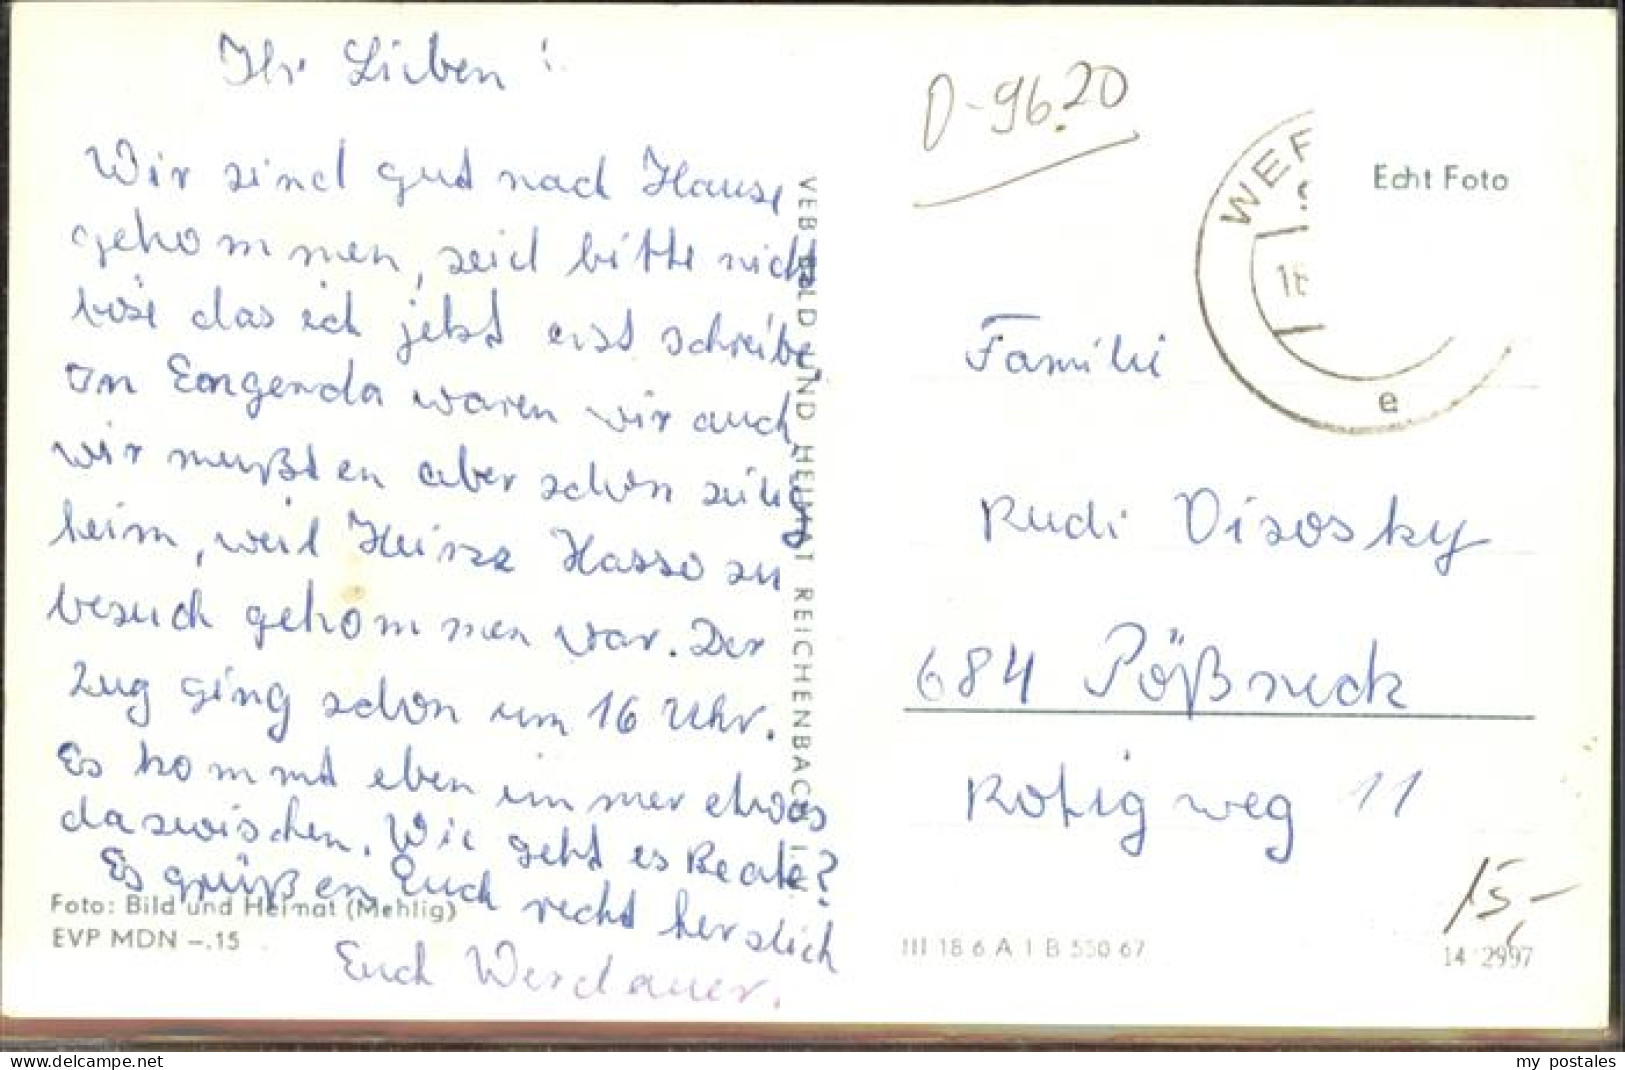 Ihr Lieben!
Wir sind gut nach Hause
gekommen, seid bitte nicht
böse das ich jetzt erst schreibe,
In Langenda waren wir auch,
wir mußten aber schon zeitig
heim, weil Heinz Hasso zu
besuch gekommen war. Der
Zug ging schon um 16 Uhr.
Es kommt eben immer etwas
dazwischen. Wie geht es Beate?
Es grüßen Euch recht herzlich
Euch Werdauer.
Foto: Bild und Heimat (Mehlig)
EVP MDN –.15
VEB BILD UND HEIMAT REICHENBACH I. V.
D-9620
WER
18
e
Echt Foto
Familie
Rudi Disosky
684 Pößneck
Rotigweg 11
15,-
III 18 6 A 1 B 550 67
14 2997
my_postales
https://www.delcampe.net